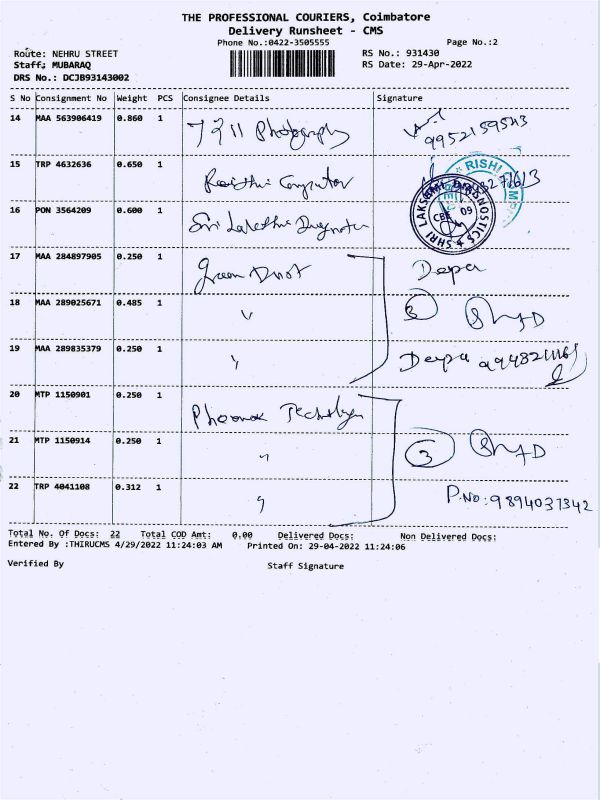 THE PROFESSIONAL COURIERS, Coimbatore
Delivery Runsheet - CMS
Phone No.:0422-3505555 Page No.:2
Route: NEHRU STREET RS No.: 931430
Staff: MUBARAQ RS Date: 29-Apr-2022
DRS No.: DCJB93143002
S No Consignment No Weight PCS Consignee Details Signature
14 MAA 563906419 0.860 1 Photography
15 TRP 4632636 0.650 1 Computer
RISHI
16 PON 3564209 0.600 1 Sri
SHRI LAKSHMI DIAGNOSTICS
CBE 09
17 MAA 284897905 0.250 1 Green Depa
18 MAA 289025671 0.485 1 " 3
19 MAA 289835379 0.250 1 " Deepa
20 MTP 1150901 0.250 1
21 MTP 1150914 0.250 1 " 3
22 TRP 4041108 0.312 1 " P.No: 9894037342
Total No. Of Docs: 22 Total COD Amt: 0.00 Delivered Docs: Non Delivered Docs:
Entered By :THIRUCMS 4/29/2022 11:24:03 AM Printed On: 29-04-2022 11:24:06
Verified By Staff Signature